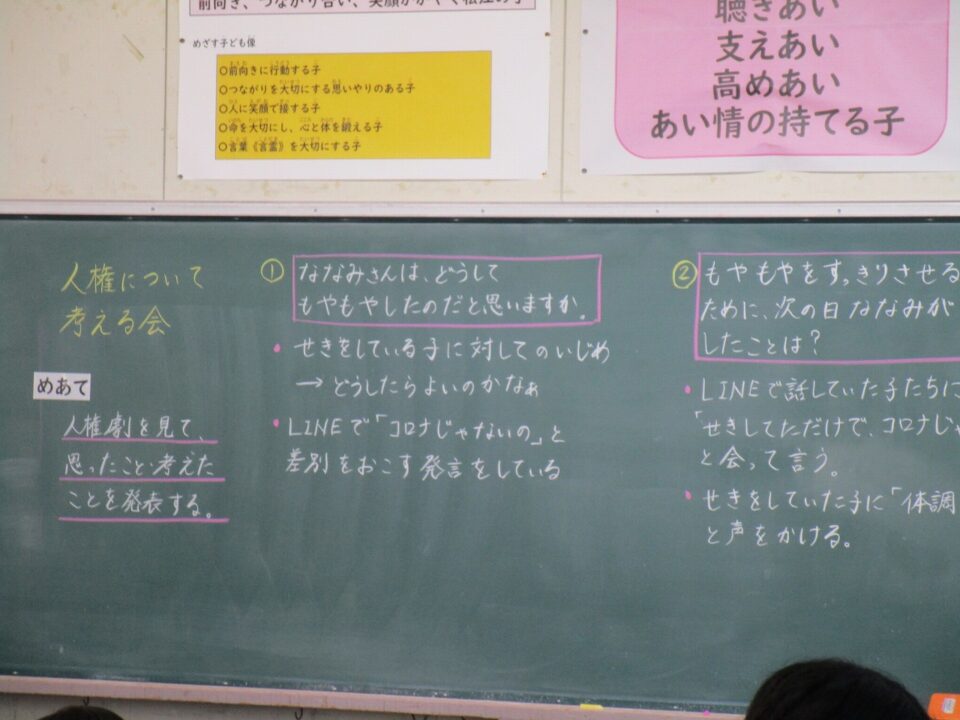 前向き、つながり合い、笑顔かがやく松江の子
めざす子ども像
○前向きに行動する子
○つながりを大切にする思いやりのある子
○人に笑顔で接する子
○命を大切にし、心と体を鍛える子
○言葉《言霊》を大切にする子
聴きあい
支えあい
高めあい
あい情の持てる子
人権について
考える会
めあて
人権劇を見て、
思ったこと・考えた
ことを発表する。
① ななみさんは、どうして
もやもやしたのだと思いますか。
・せきをしている子に対してのいじめ
→どうしたらよいのかなぁ
・LINEで「コロナじゃないの」と
差別をおこす発言をしている
② もやもやをすっきりさせる
ために、次の日ななみが
したことは？
・LINEで話していた子たちに
「せきしてただけで、コロナじゃ
と会って言う。
・せきをしていた子に「体調
と声をかける。